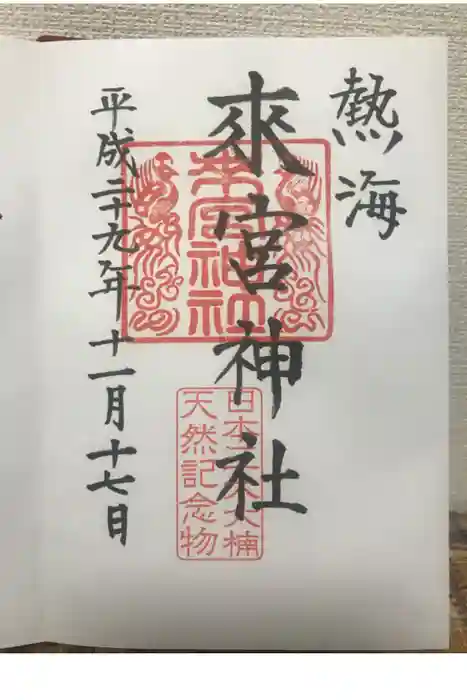 熱海
來宮神社
來宮神社
日本大楠
天然記念物
平成二十九年十一月十七日